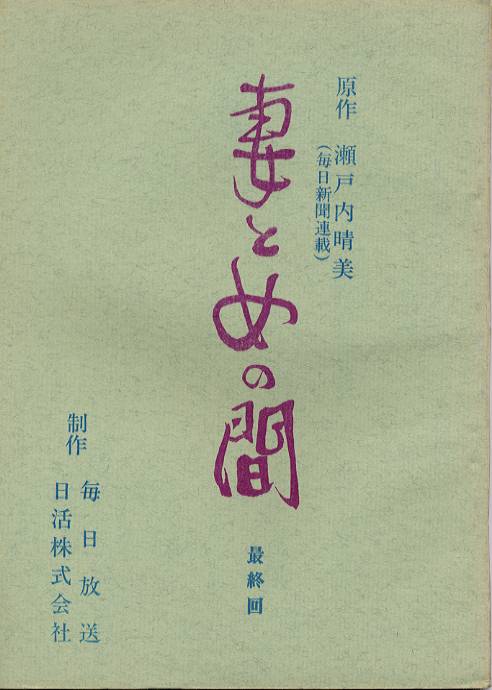 原作 瀬戸内晴美
(毎日新聞連載)
妻と女の間
最終回
制作 毎日放送
日活株式会社